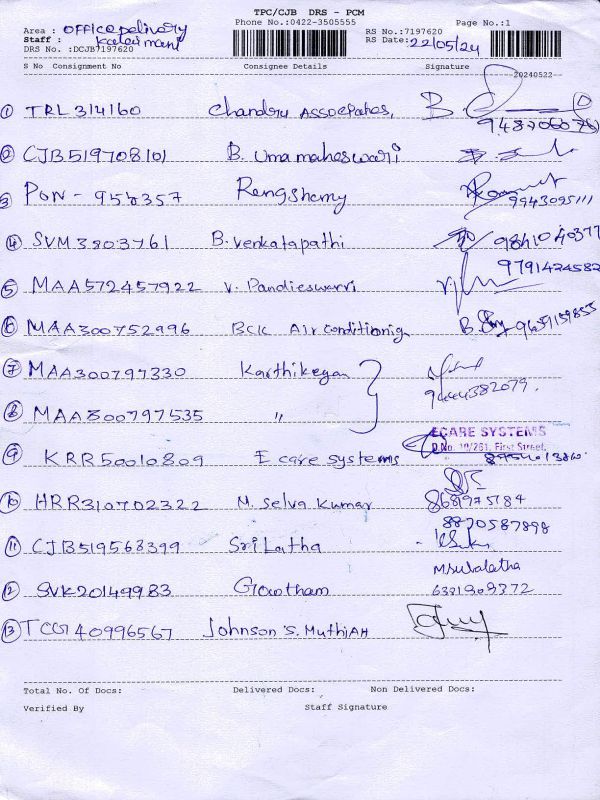 TPC/CJB DRS - PCM
Phone No.:0422-3505555 Page No.:1
Area : Office Delivery RS No.:7197620
Staff : RS Date: 22/05/24
DRS No. :DCJB7197620
S No Consignment No Consignee Details Signature
20240522
① TRL314160 Chandru Associates, B.
② CJB519708101 B. Umamaheswari
③ PON - 958357 Rengshamy 9943095111
④ SVM3803761 B. Venkatapathi 9841040377
⑤ MAA572457922 V. Pandieswarri 9791424582
⑥ MAA300752996 BCIC Air conditionig 9659159855
⑦ MAA300797330 Karthikeyan
⑧ MAA300797535 "
ECARE SYSTEMS
D.No. 10/251, First Street,
⑨ KRR50010809 E care systems
⑩ HRR310702322 M. Selva Kumar 8681975184
8870587898
⑪ CJB519568399 Sri Latha
M.Subalatha
⑫ SVK20149983 Gowtham 6381909372
⑬ TCG40996567 Johnson S. Muthiah
Total No. Of Docs: Delivered Docs: Non Delivered Docs:
Verified By Staff Signature